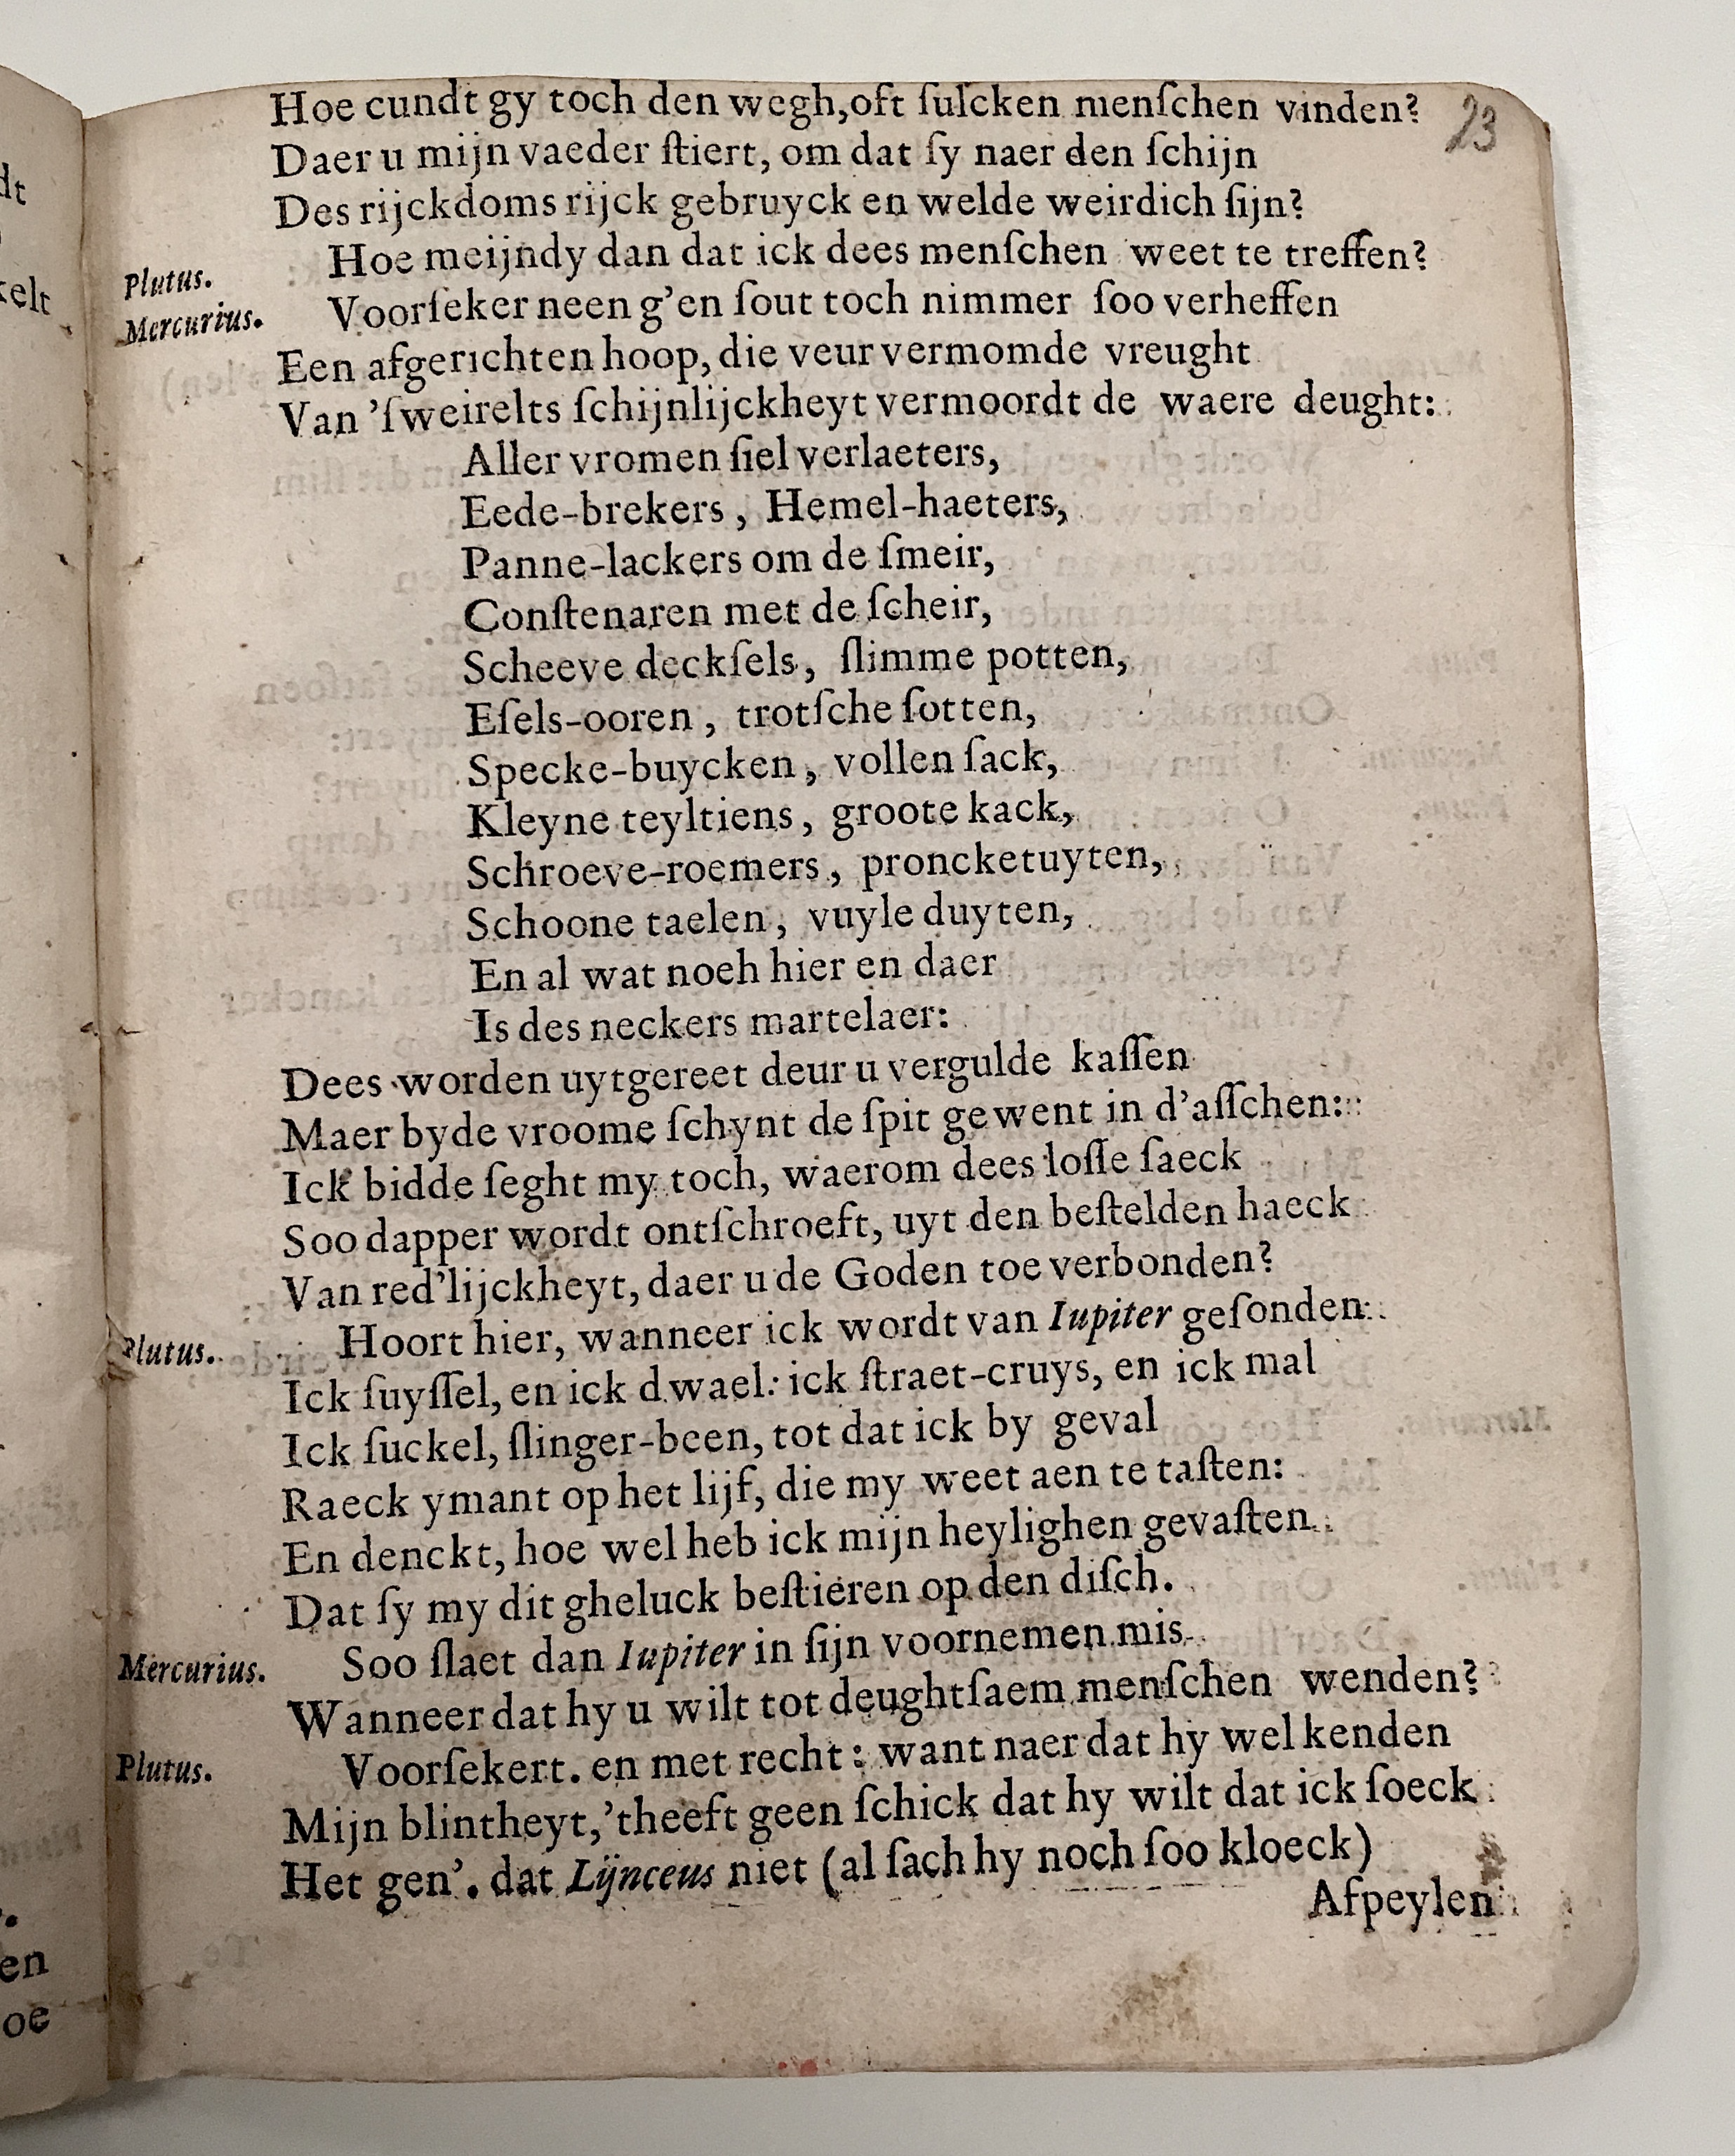 23
Hoe cundt gy toch den wegh, oft ſulcken menſchen vinden?
Daer u mijn vaeder ſtiert, om dat ſy naer den ſchijn
Des rijckdoms rijck gebruyck en welde weirdich ſijn?
Plutus. Hoe meijndy dan dat ick dees menſchen weet te treffen?
Mercurius. Voorſeker neen g'en ſout toch nimmer ſoo verheffen
Een afgerichten hoop, die veur vermomde vreught
Van 'ſweirelts ſchijnlijckheyt vermoordt de waere deught:
Aller vromen ſiel verlaeters,
Eede-brekers, Hemel-haeters,
Panne-lackers om de ſmeir,
Conſtenaren met de ſcheir,
Scheeve deckſels, ſlimme potten,
Eſels-ooren, trotſche ſotten,
Specke-buycken, vollen ſack,
Kleyne teyltiens, groote kack,
Schroeve-roemers, proncketuyten,
Schoone taelen, vuyle duyten,
En al wat noeh hier en daer
Is des neckers martelaer:
Dees worden uytgereet deur u vergulde kaſſen
Maer byde vroome ſchynt de ſpit gewent in d'aſſchen:
Ick bidde ſeght my toch, waerom dees loſſe ſaeck
Soo dapper wordt ontſchroeft, uyt den beſtelden haeck
Van red'lijckheyt, daer u de Goden toe verbonden?
Plutus. Hoort hier, wanneer ick wordt van Iupiter geſonden:
Ick ſuyſſel, en ick dwael: ick ſtraet-cruys, en ick mal
Ick ſuckel, ſlinger-been, tot dat ick by geval
Raeck ymant op het lijf, die my weet aen te taſten:
En denckt, hoe wel heb ick mijn heylighen gevaſten
Dat ſy my dit gheluck beſtieren op den diſch.
Mercurius. Soo ſlaet dan Iupiter in ſijn voornemen mis
Wanneer dat hy u wilt tot deughtſaem menſchen wenden?
Plutus. Voorſekert. en met recht: want naer dat hy wel kenden
Mijn blintheyt, 'theeft geen ſchick dat hy wilt dat ick ſoeck
Het gen'. dat Lijnceus niet (al ſach hy noch ſoo kloeck)
Afpeylen